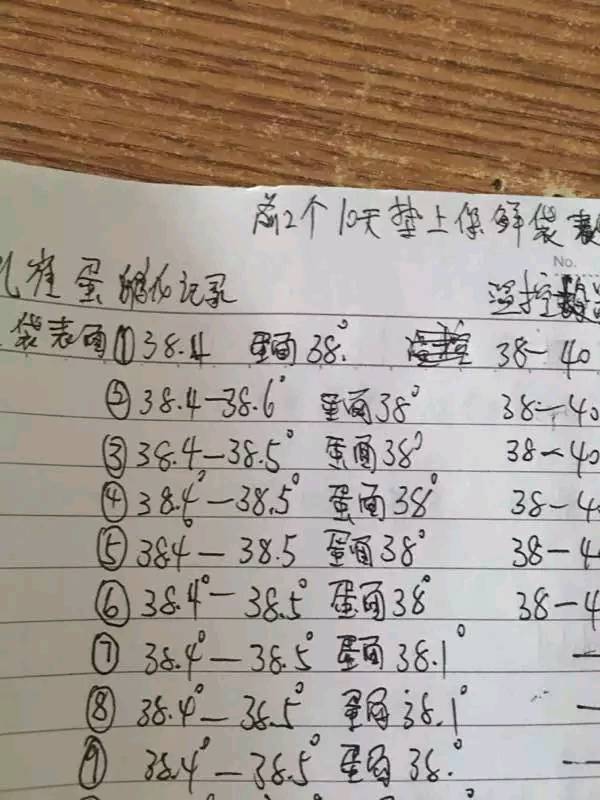 前2个10天垫上保鲜袋表
No.
孔雀蛋孵化记录 温控数
袋表面① 38.4 蛋面38° 38-40
② 38.4-38.6° 蛋面38° 38-40
③ 38.4-38.5° 蛋面38° 38-40
④ 38.4°-38.5° 蛋面38° 38-4
⑤ 38.4-38.5 蛋面38° 38-4
⑥ 38.4°-38.5° 蛋面38° 38-4
⑦ 38.4°-38.5° 蛋面38.1° —
⑧ 38.4°-38.5° 蛋面38.1° —
⑨ 38.4°-38.5° 蛋面38.° —